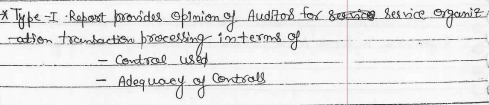 * Type-I Report provides opinion of Auditos for service organiz
-ation transaction processing interms of
- Control used
- Adequacy of Controls